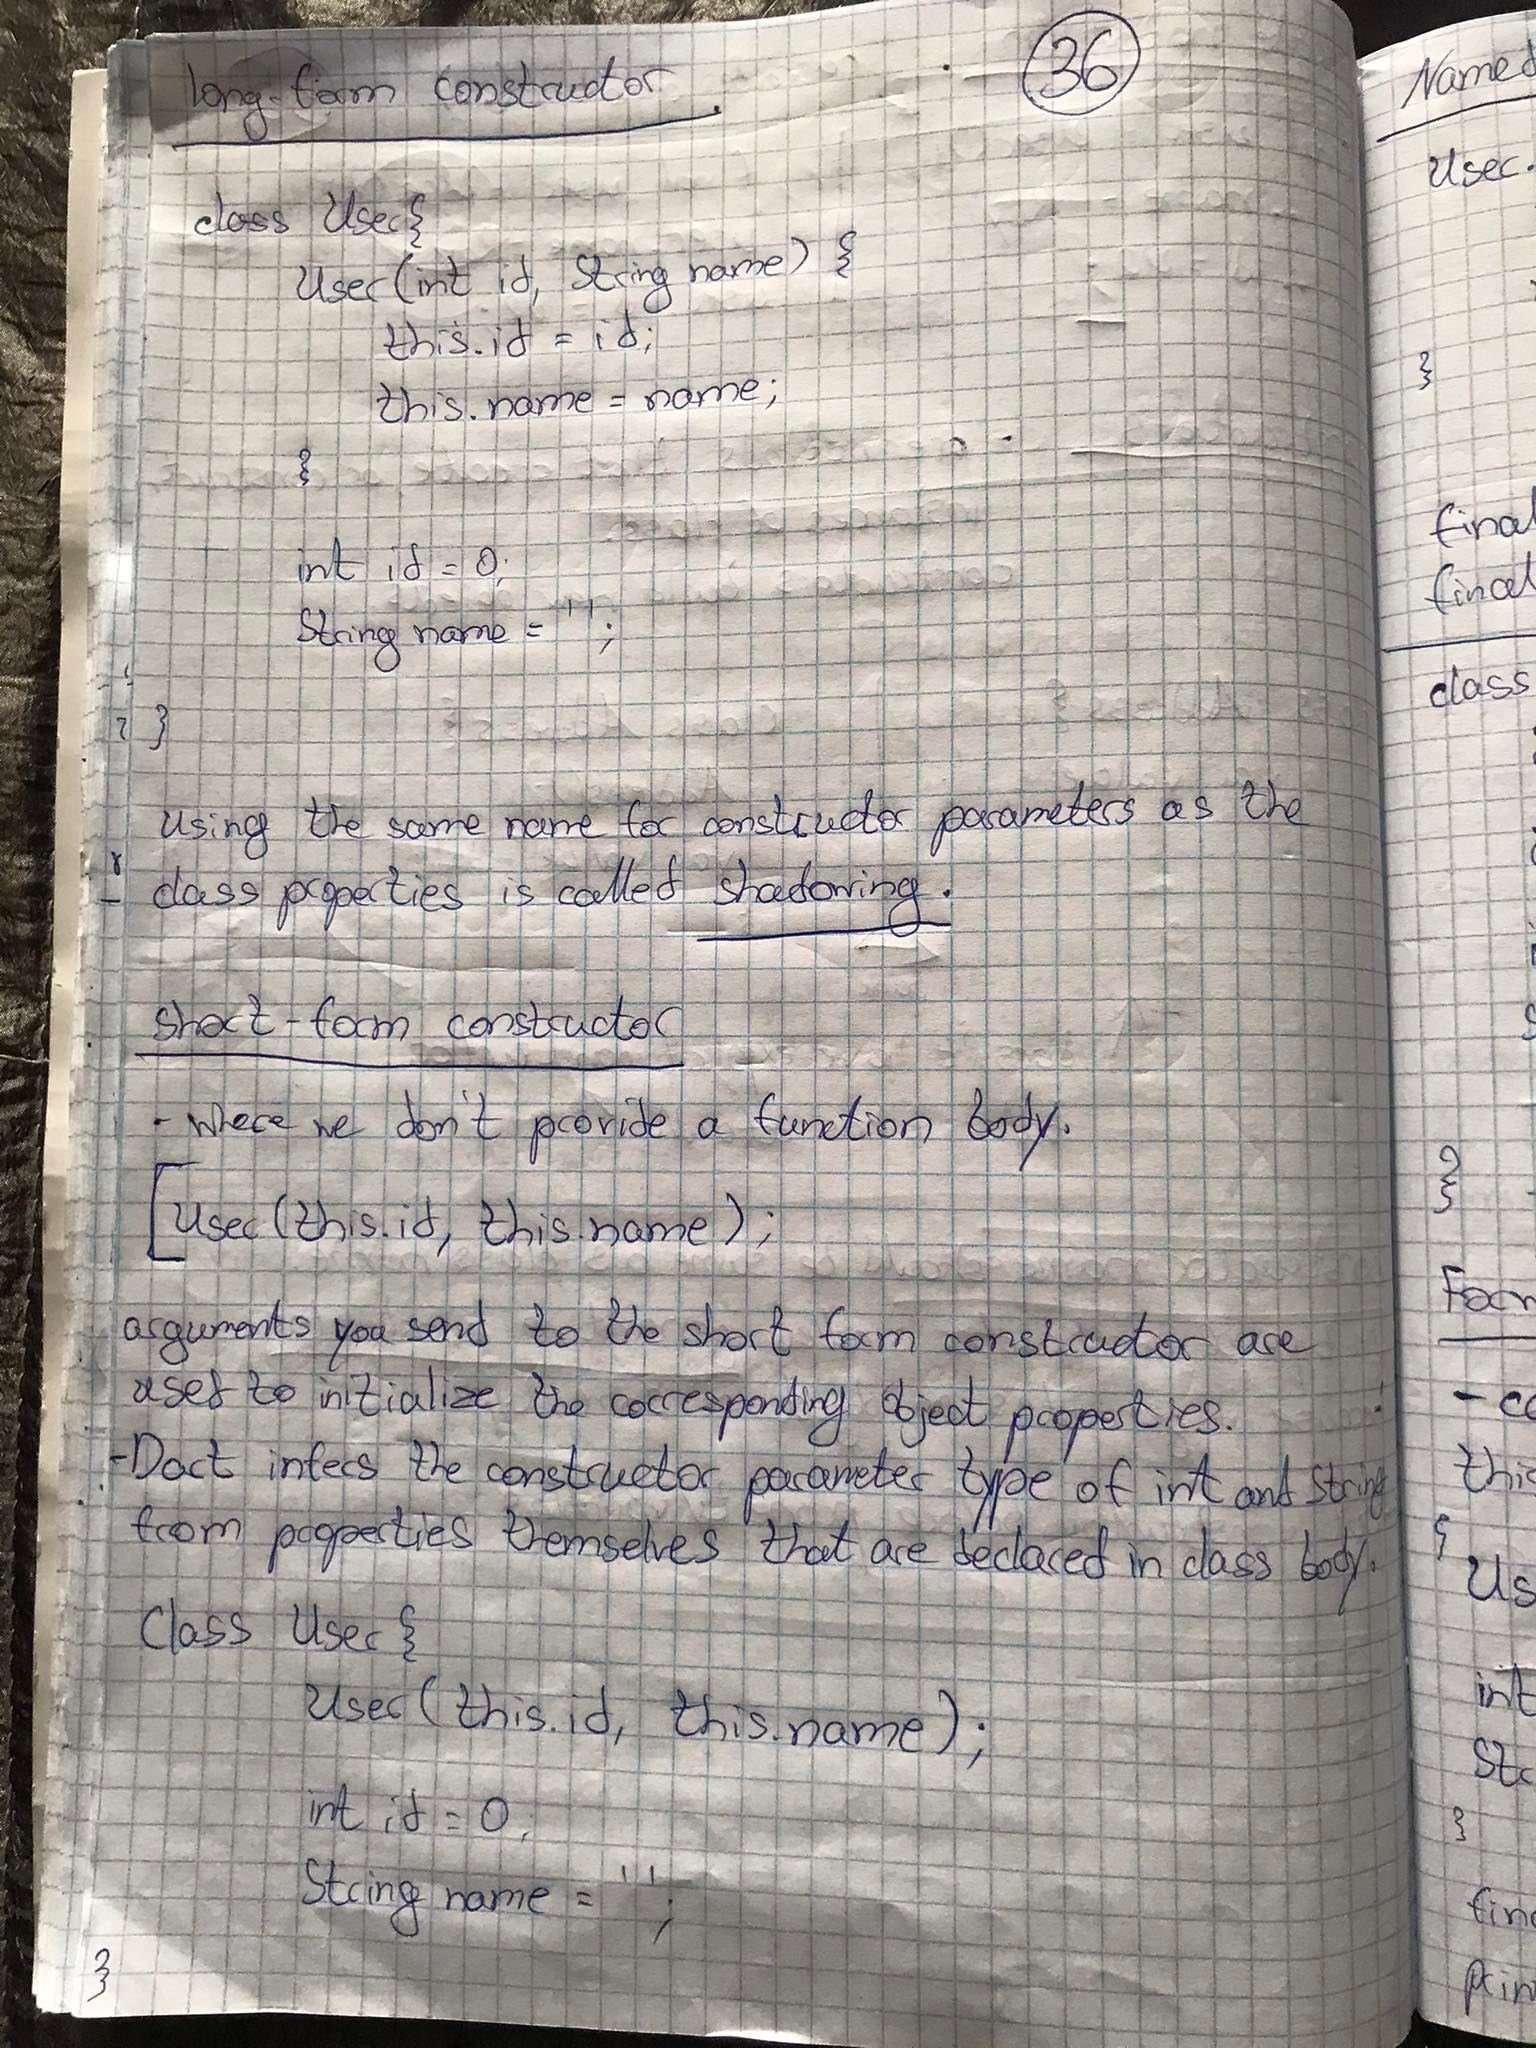 long-form constructor
36
class User{
User(int id, String name) {
this.id = id;
this.name = name;
}
int id = 0;
String name = '';
}
Using the same name for constructor parameters as the
class properties is called shadowing.
short-form constructor
- where we don't provide a function body.
[User(this.id, this.name);
arguments you send to the short form constructor are
used to initialize the corresponding object properties.
-Dart infers the constructor parameter type of int and String
from properties themselves that are declared in class body.
Class User{
User(this.id, this.name);
int id = 0;
String name = '';
}
Named
User.
}
final
final
class
}
Form
this
{
Us
int
Str
}
fina
prin